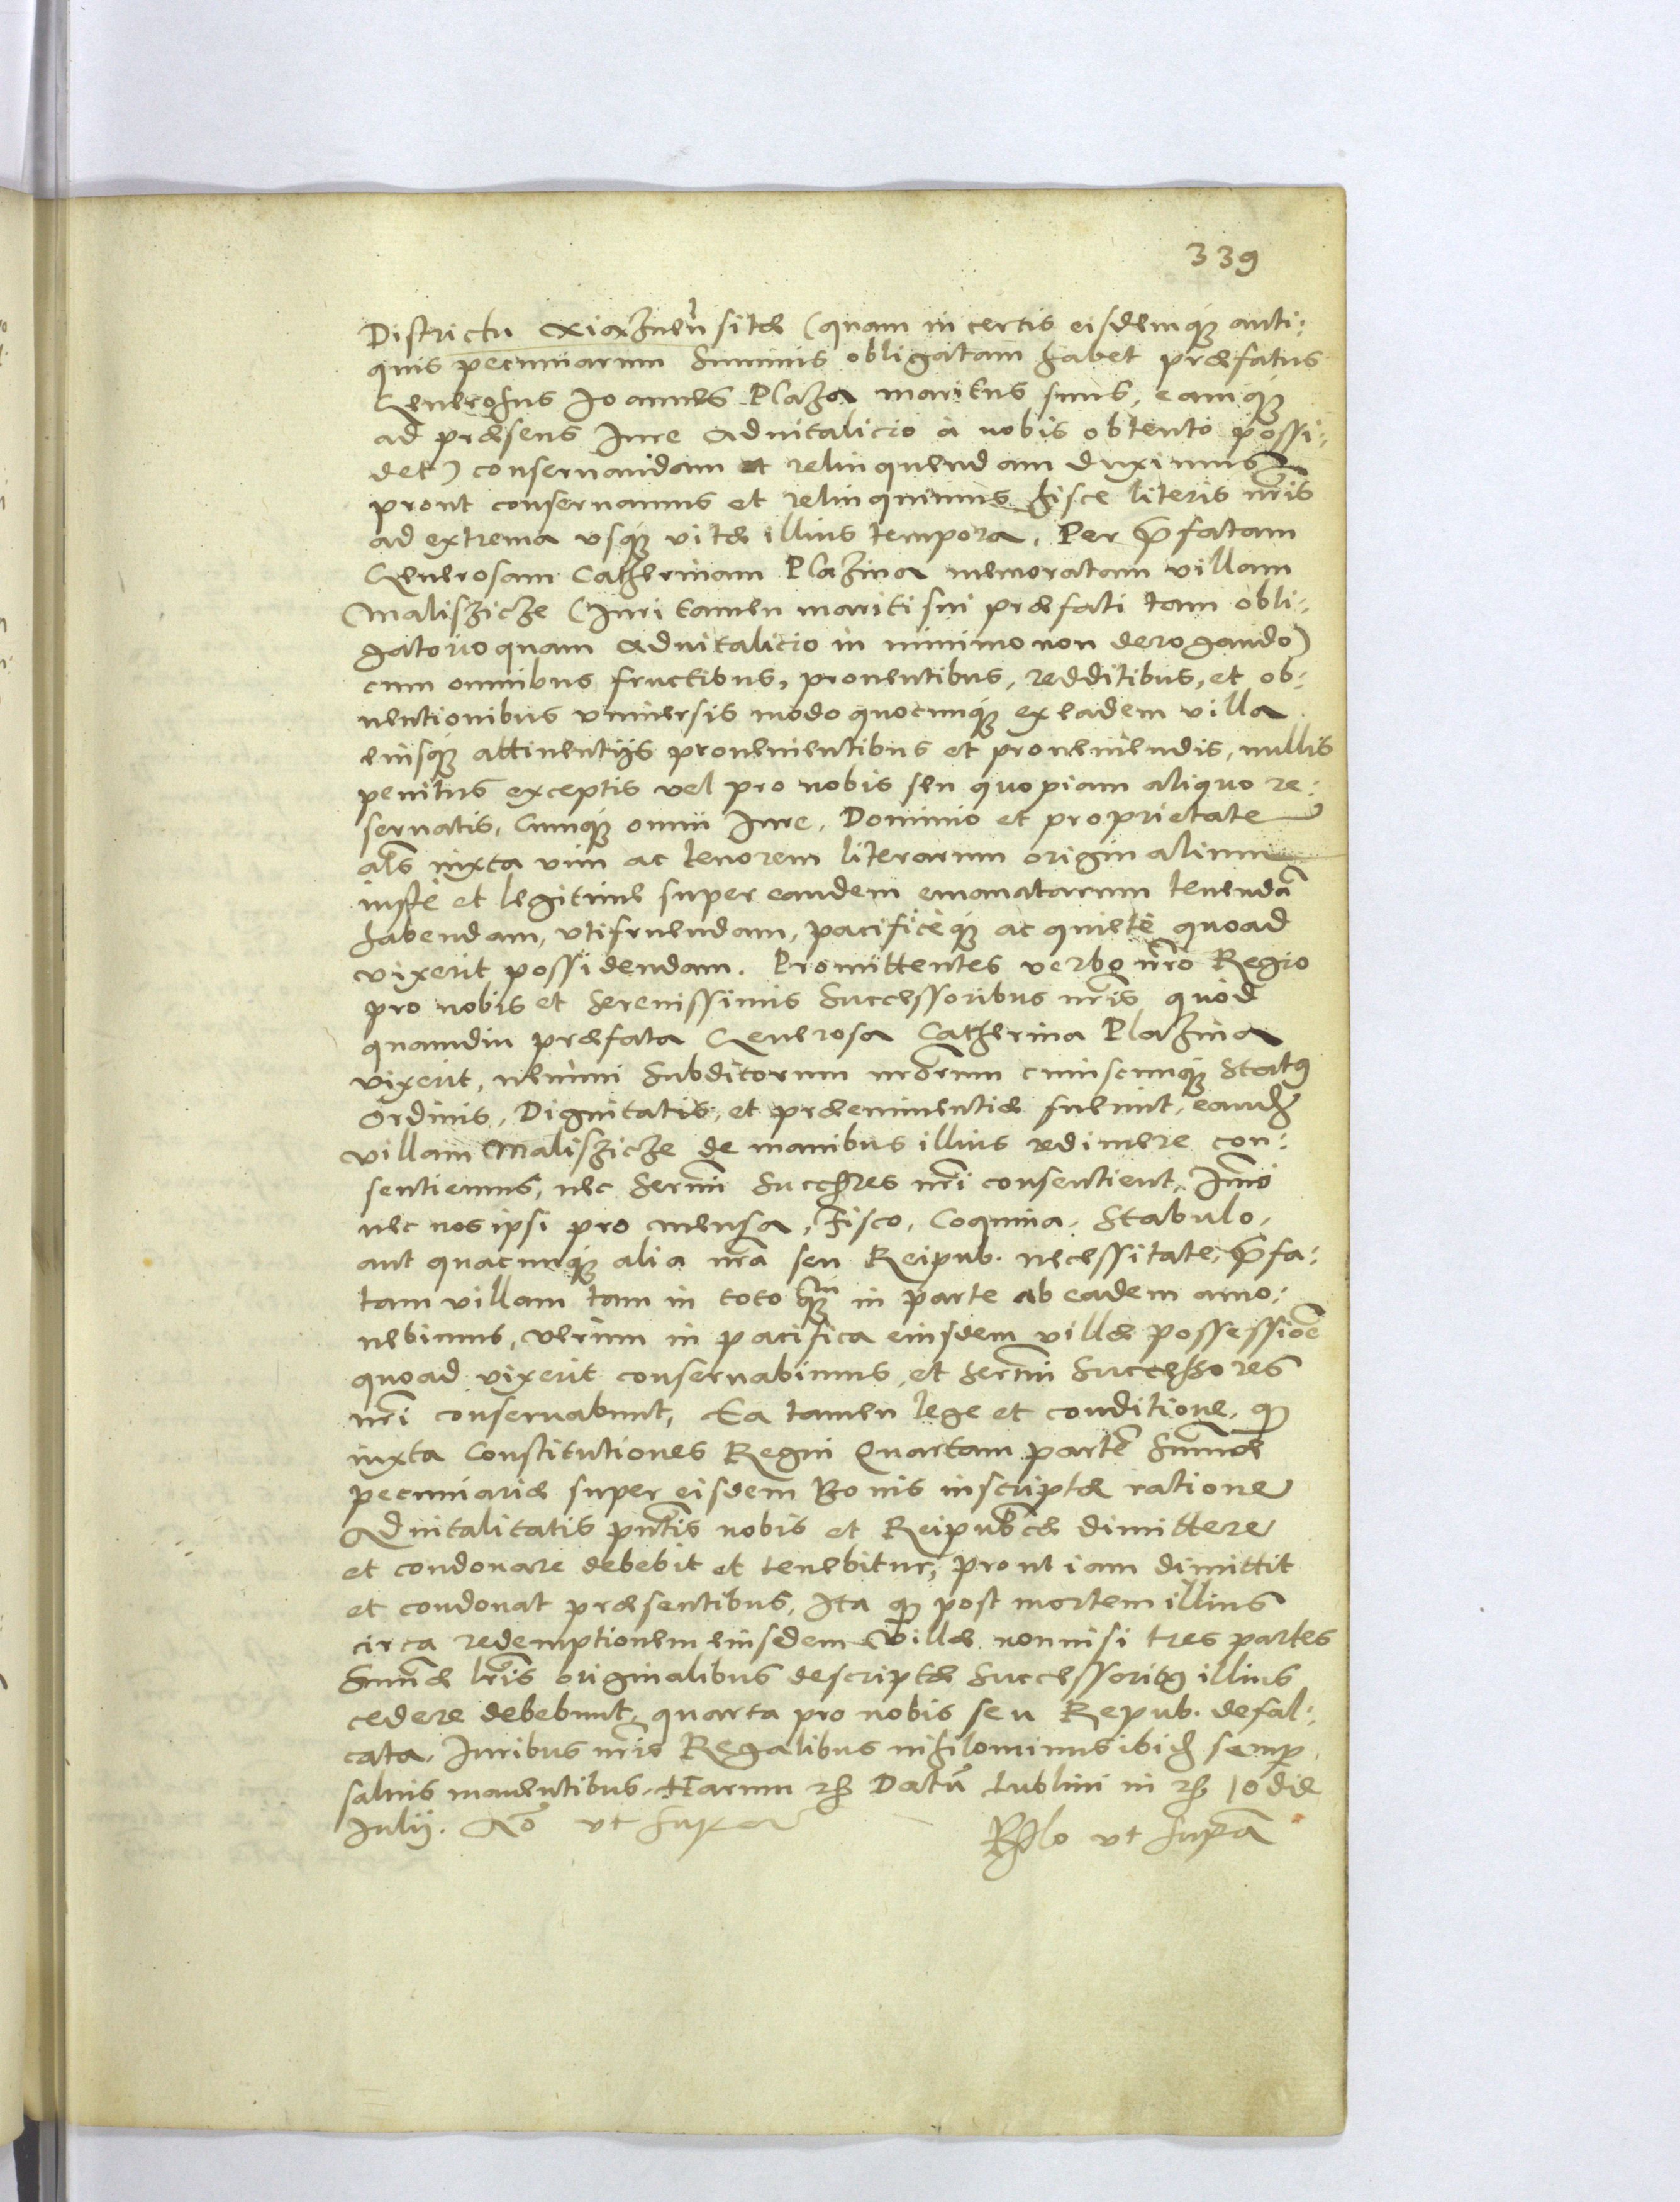 339
Districtu Xiązneñ sitæ (quam in certis eisdemq3 anti:
quis pecuniarum summis obligatam habet præfatus
Generosus Joannes Plaza maritus suus, eamq3
ad præsens Jure Aduitalicio à nobis obtento possi:
det) conseruandam et relinquendam duximus
prout conseruamus et relinquimus hisce literis nr̃is
ad extrema vsq3 vitæ illius tempora. Per p̃fatam
Generosam Catherinam Plazina memoratam villam
Maliszicze (Juri tamen mariti sui præfati tam obli:
gatorio quam Aduitalicio in minimo non derogando)
cum omnibus fructibus, prouentibus, redditibus, et ob:
uentionibus vniuersis modo quocunq3 ex eadem villa
eiusq3 attinentijs prouenientibus et proueniendis, nullis
penitus exceptis vel pro nobis seu quopiam aliquo re:
seruatis, Cumq3 omni Jure, Dominio et proprietate
al̃s iuxta vim ac tenorem literarum originalium
iustè et legitime super eandem emanatarum tenendã
habendam, vtifruendam, pacificèq3 ac quietè quoad
vixerit possidendam. Promittentes verbo nr̃o Regio
pro nobis et Serenissimis Successoribus nr̃is quòd
quamdiu præfata Generosa Catherina Plazina
vixerit, nemini Subditorum nr̃orum cuiuscunq3 Status
Ordinis, Dignitatis, et præeminentiæ fuerint, eand̃
villam Maliszicze de manibus illius redimere con:
sentiemus, nec Ser̃mi Succ̃res nr̃i consentient. Im̃o
nec nos ipsi pro mensa, Fisco, Coquina, Stabulo,
aut quacunq3 alia nr̃a seu Reipub. necessitate, p̃fa:
tam villam tam in toto q̃m in parte ab eadem amo:
uebimus, verum in pacifica eiusdem villæ possessiõe
quoad vixerit conseruabimus, et Ser̃mi Successores
nr̃i conseruabunt, Ea tamen lege et conditione, q̃
iuxta Constitutiones Regni Quartam partẽ Sum̃æ
pecuniariæ super eisdem Bonis inscriptæ ratione
Aduitalitatis pñtis nobis et Reipub̃cæ dimittere
et condonare debebit et tenebitur, prout iam dimittit
et condonat præsentibus, Ita q̃ post mortem illius
circa redemptionem eiusdem Villæ nonnisi tres partes
Sum̃æ lr̃is originalibus descriptæ Successorib9 illius
cedere debebunt, quarta pro nobis seu Repub. defal:
cata. Juribus nr̃is Regalibus nihilominus ibid̃ semp̃
saluis manentibus. Harum rẽ Datũ Lublini in rẽ 10 die
Julij. Añо vt supra
R̃lo vt suprã